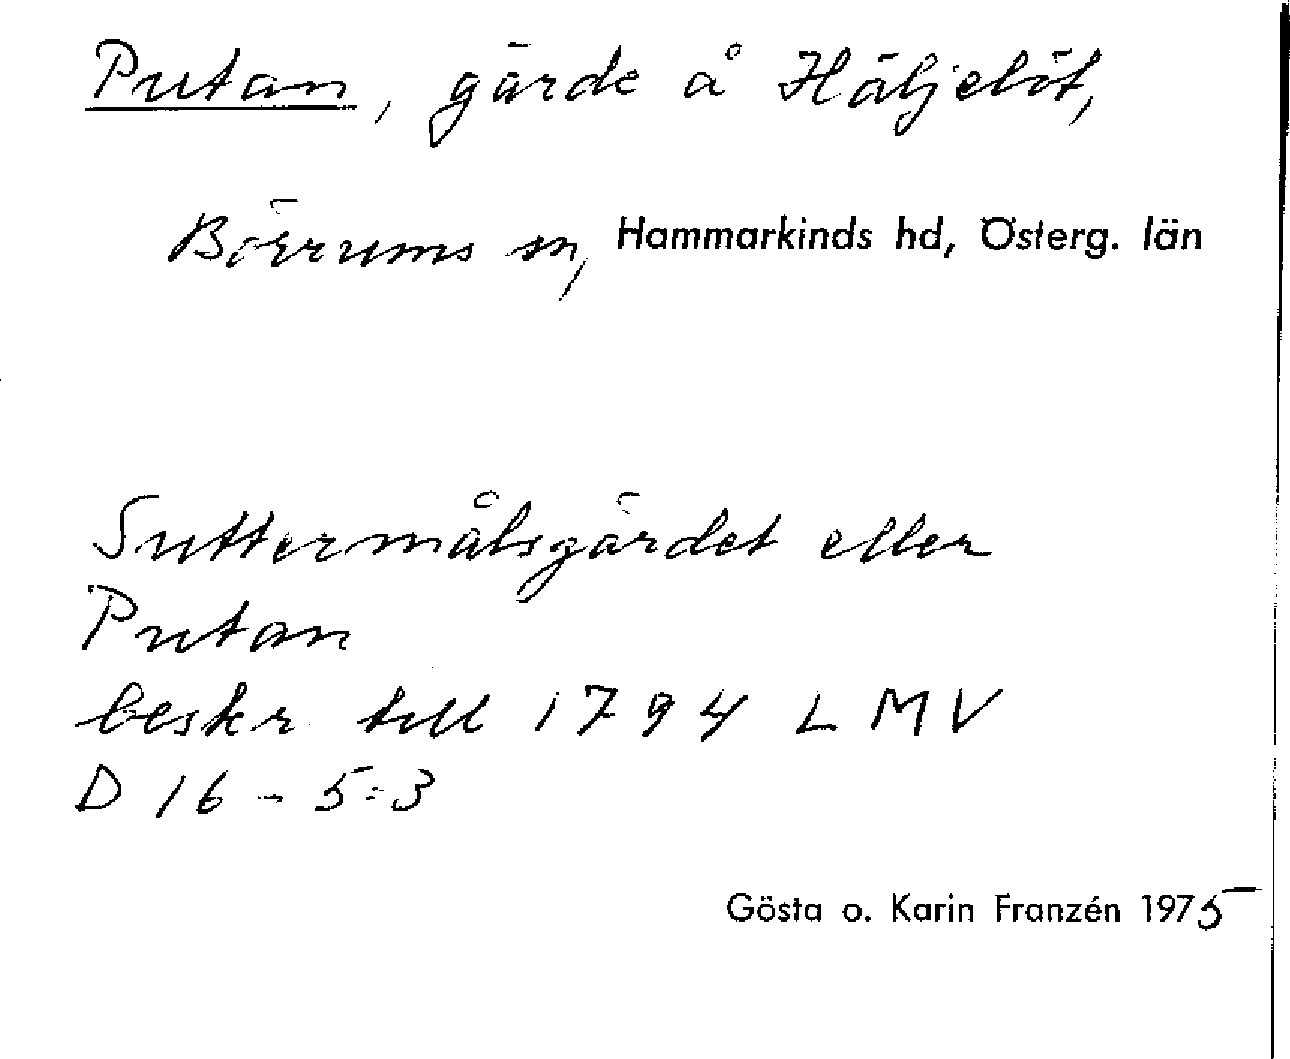 Putan, gärde å Häljelöt,
Börrums sn, Hammarkinds hd, Österg. län
Suttermålsgärdet eller
Putan
beskr till 1794 LMV
D 16 - 5:3
Gösta o. Karin Franzén 1975